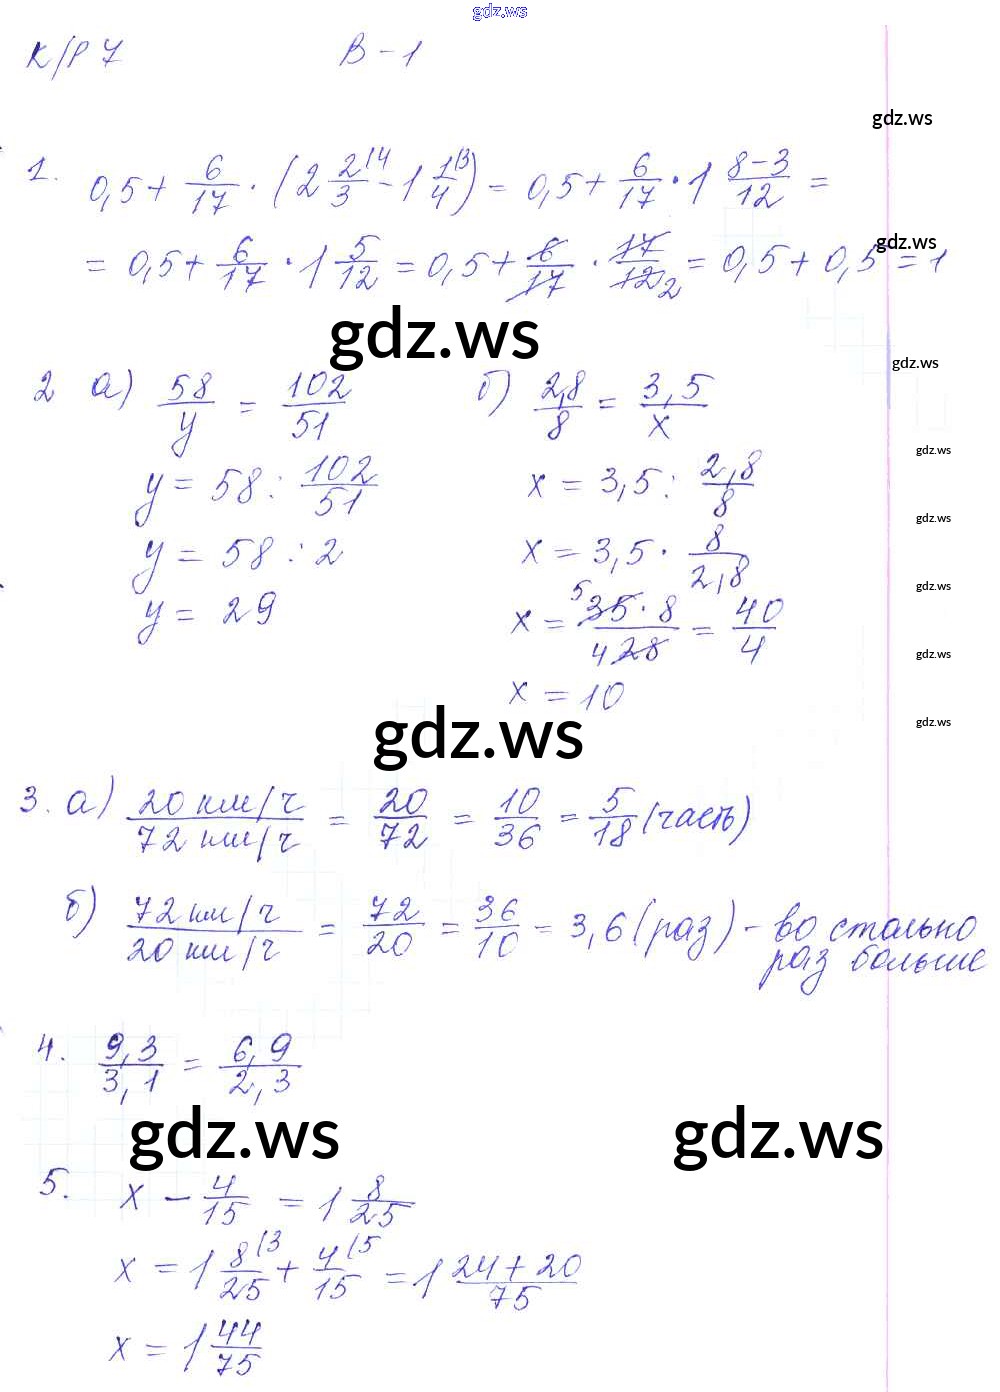 gdz.ws
К/Р 7 В-1
gdz.ws
1. 0,5 + 6/17 · (2 2/3 (4 - 1 1/4 (3) = 0,5 + 6/17 · 1 8-3/12 =
gdz.ws
= 0,5 + 6/17 · 1 5/12 = 0,5 + 6/17 · 17/12 2 = 0,5 + 0,5 = 1
gdz.ws
gdz.ws
2 а) 58/y = 102/51 б) 2,8/8 = 3,5/x
gdz.ws
y = 58 : 102/51 x = 3,5 : 2,8/8
gdz.ws
y = 58 : 2 x = 3,5 · 8/2,8
gdz.ws
y = 29 x = 5 35 · 8/4 28 = 40/4
gdz.ws
x = 10
gdz.ws
gdz.ws
3. а) 20 км/ч/72 км/ч = 20/72 = 10/36 = 5/18 (часть)
б) 72 км/ч/20 км/ч = 72/20 = 36/10 = 3,6 (раз) - во столько
раз больше
4. 9,3/3,1 = 6,9/2,3
gdz.ws gdz.ws
5. x - 4/15 = 1 8/25
x = 1 8/25 (3 + 4/15 (5 = 1 24+20/75
x = 1 44/75